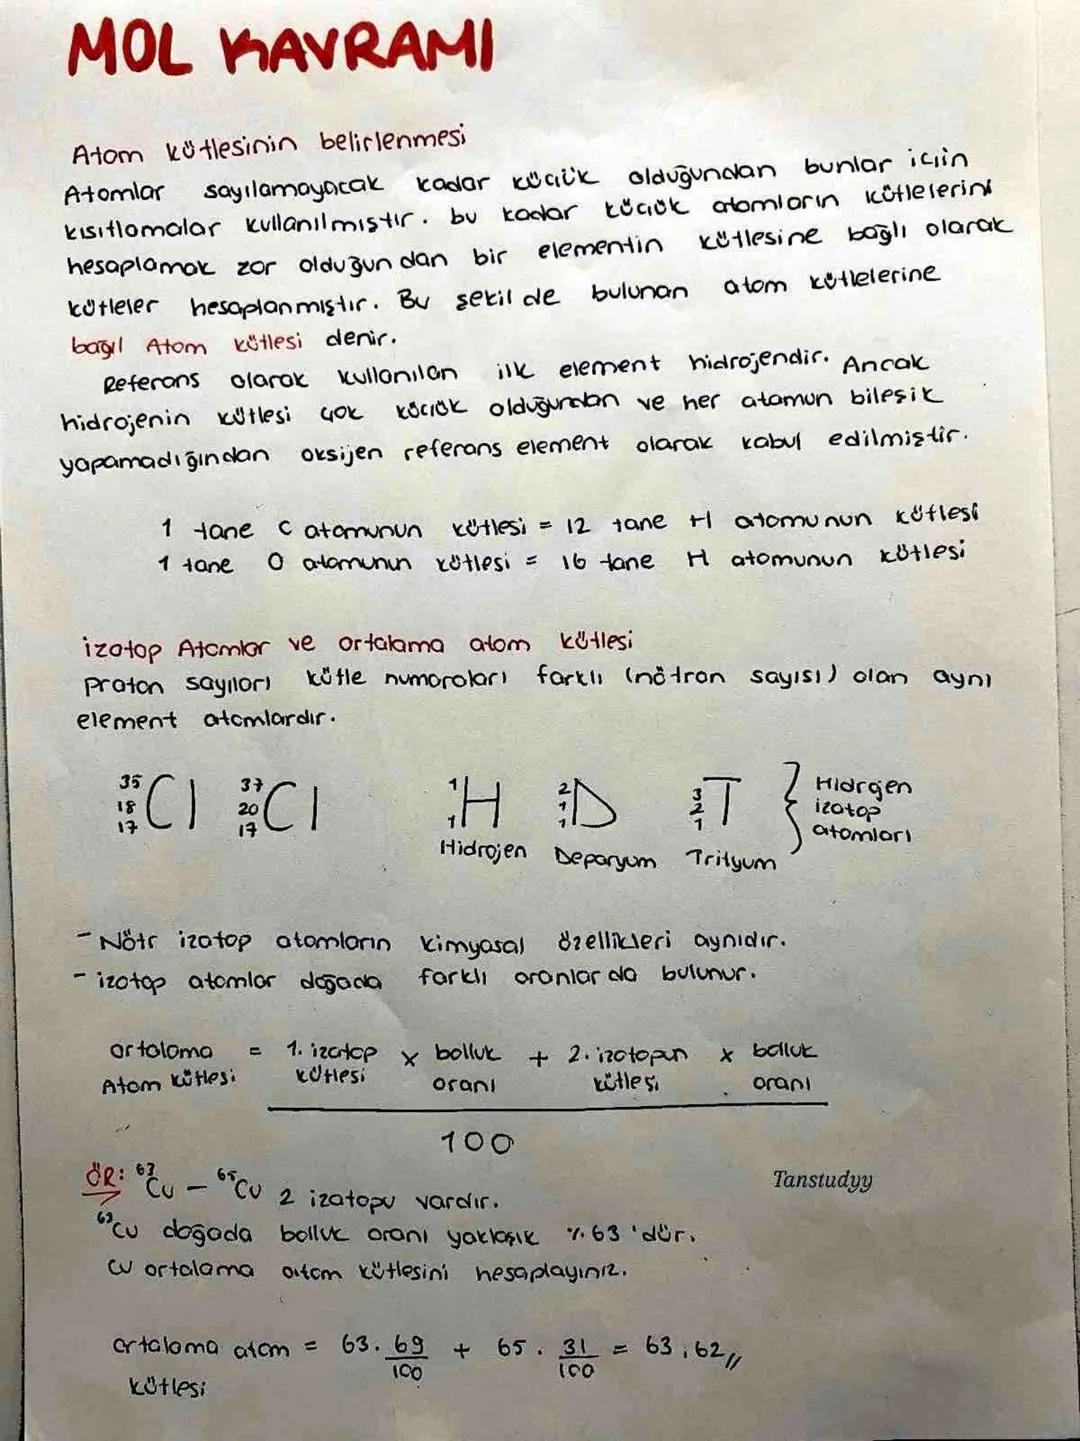 MOL KAVRAMI
Atom kütlesinin belirlenmesi
Atomlar sayılamayacak kadar küçük olduğundan bunlar için
kısıtlamalar kullanılmıştır. bu kadar küçük atomların kütlelerini
hesaplamak zor olduğundan bir elementin kütlesine bağlı olarak
kütleler hesaplanmıştır. Bu şekilde bulunan atom kütlelerine
bağıl Atom kütlesi denir.
Referans olarak kullanılan ilk element hidrojendir. Ancak
hidrojenin kütlesi çok küçük olduğundan ve her atomun bileşik
yapamadığından oksijen referans element olarak kabul edilmiştir.
1 tane C atomunun kütlesi = 12 tane H atomunun kütlesi
1 tane O atomunun kütlesi = 16 tane H atomunun kütlesi
izotop Atomlar ve ortalama atom kütlesi
Proton sayıları kütle numaraları farklı (nötron sayısı) olan aynı
element atomlardır.
35 18 17 Cl 37 20 17 Cl 1 1 H 2 1 1 D 3 2 1 T } Hidrojen izotop atomları
Hidrojen Döteryum Trityum
- Nötr izotop atomların kimyasal özellikleri aynıdır.
- izotop atomlar doğada farklı oranlarda bulunur.
ortalama = 1. izotop x bolluk + 2. izotopun x bolluk
Atom kütlesi kütlesi oranı kütlesi oranı
100
ÖR: 63Cu - 65Cu 2 izotopu vardır.
Tanstudyy
63Cu doğada bolluk oranı yaklaşık %63'dür.
Cu ortalama atom kütlesini hesaplayınız.
ortalama atom = 63. 69/100 + 65. 31/100 = 63,62//
kütlesi